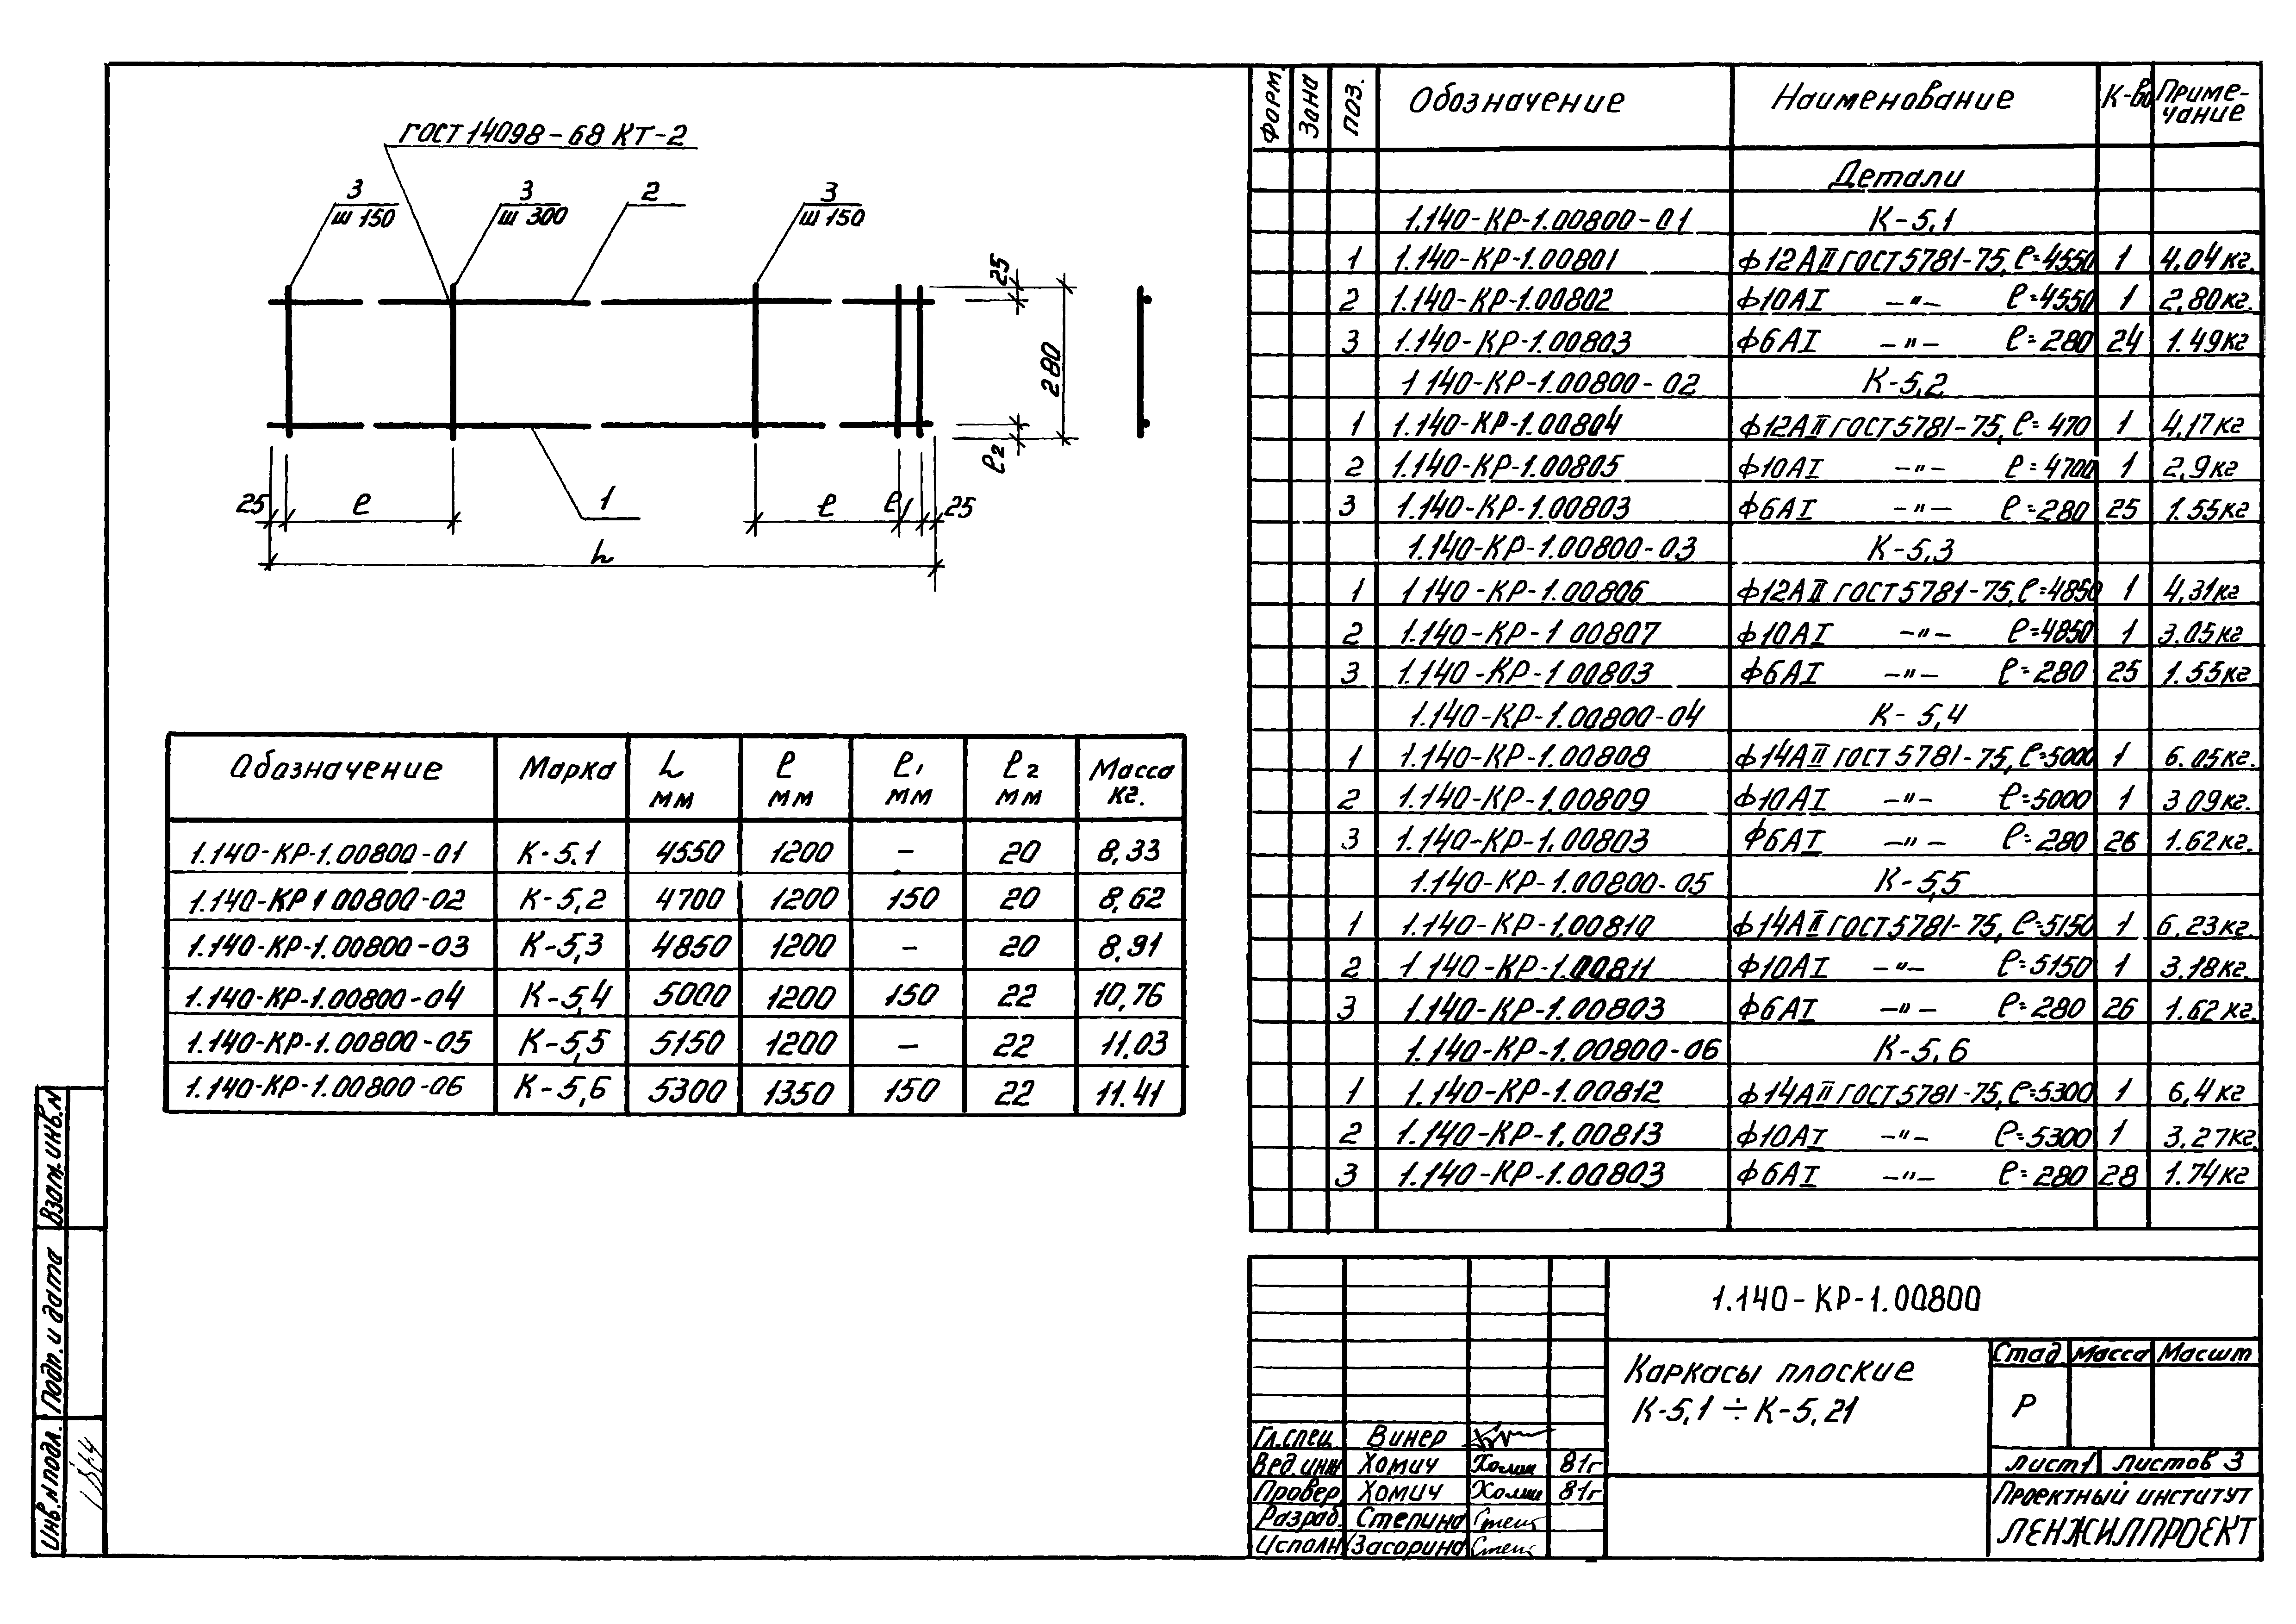 ГОСТ 14098-68 КТ-2
3
ш 150
3
ш 300
2
3
ш 150
25
280
ℓ2
1
25 ℓ ℓ ℓ1 25
L
Обозначение Марка L мм ℓ мм ℓ1 мм ℓ2 мм Масса кг.
1.140-КР-1.00800-01 К-5.1 4550 1200 – 20 8,33
1.140-КР 1.00800-02 К-5,2 4700 1200 150 20 8,62
1.140-КР-1.00800-03 К-5,3 4850 1200 – 20 8,91
1.140-КР-1.00800-04 К-5,4 5000 1200 150 22 10,76
1.140-КР-1.00800-05 К-5,5 5150 1200 – 22 11.03
1.140-КР-1.00800-06 К-5,6 5300 1350 150 22 11.41
Форм. Зона Поз. Обозначение Наименование К-во Приме-
чание
Детали
1.140-КР-1.00800-01 К-5,1
1 1.140-КР-1.00801 ф12АII ГОСТ 5781-75, ℓ=4550 1 4.04кг.
2 1.140-КР-1.00802 ф10АI –"– ℓ=4550 1 2,80кг.
3 1.140-КР-1.00803 ф6АI –"– ℓ=280 24 1.49кг
1 140-КР-1.00800-02 К-5,2
1 1.140-КР-1.00804 ф12АII ГОСТ 5781-75, ℓ=470 1 4,17кг
2 1.140-КР-1.00805 ф10АI –"– ℓ=4700 1 2,9кг
3 1.140-КР-1.00803 ф6АI –"– ℓ=280 25 1.55кг
1.140-КР-1.00800-03 К-5,3
1 1 140-КР-1.00806 ф12АII ГОСТ 5781-75, ℓ=4850 1 4,31кг
2 1.140-КР-1 00807 ф10АI –"– ℓ=4850 1 3.05кг
3 1.140-КР-1 00803 ф6АI –"– ℓ=280 25 1.55кг
1.140-КР-1.00800-04 К-5,4
1 1.140-КР-1.00808 ф14АII ГОСТ 5781-75, ℓ=5000 1 6.05кг.
2 1.140-КР-1,00809 ф10АI –"– ℓ=5000 1 3.09кг.
3 1.140-КР-1,00803 ф6АI –"– ℓ=280 26 1.62кг.
1.140-КР-1.00800-05 К-5,5
1 1.140-КР-1.00810 ф14АII ГОСТ 5781-75, ℓ=5150 1 6,23кг.
2 1 140-КР-1.00811 ф10АI –"– ℓ=5150 1 3.18кг.
3 1.140-КР-1.00803 ф6АI –"– ℓ=280 26 1.62кг.
1.140-КР-1.00800-06 К-5,6
1 1.140-КР-1.00812 ф14АII ГОСТ 5781-75, ℓ=5300 1 6,4кг
2 1.140-КР-1,00813 ф10АI –"– ℓ=5300 1 3.27кг.
3 1.140-КР-1.00803 ф6АI –"– ℓ=280 28 1.74кг
1.140-КР-1.00800
Каркасы плоские
К-5,1 ÷ К-5,21
Стад Масса Масшт
Р
Лист 1 Листов 3
Проектный институт
ЛЕНЖИЛПРОЕКТ
Гл.спец Винер
Вед.инж Хомич Хомич 81г
Провер. Хомич Хомич 81г
Разраб. Степина Степ
Исполн. Засорина Степ
Взам.инв.N
Подп. и дата
Инв.N подл.